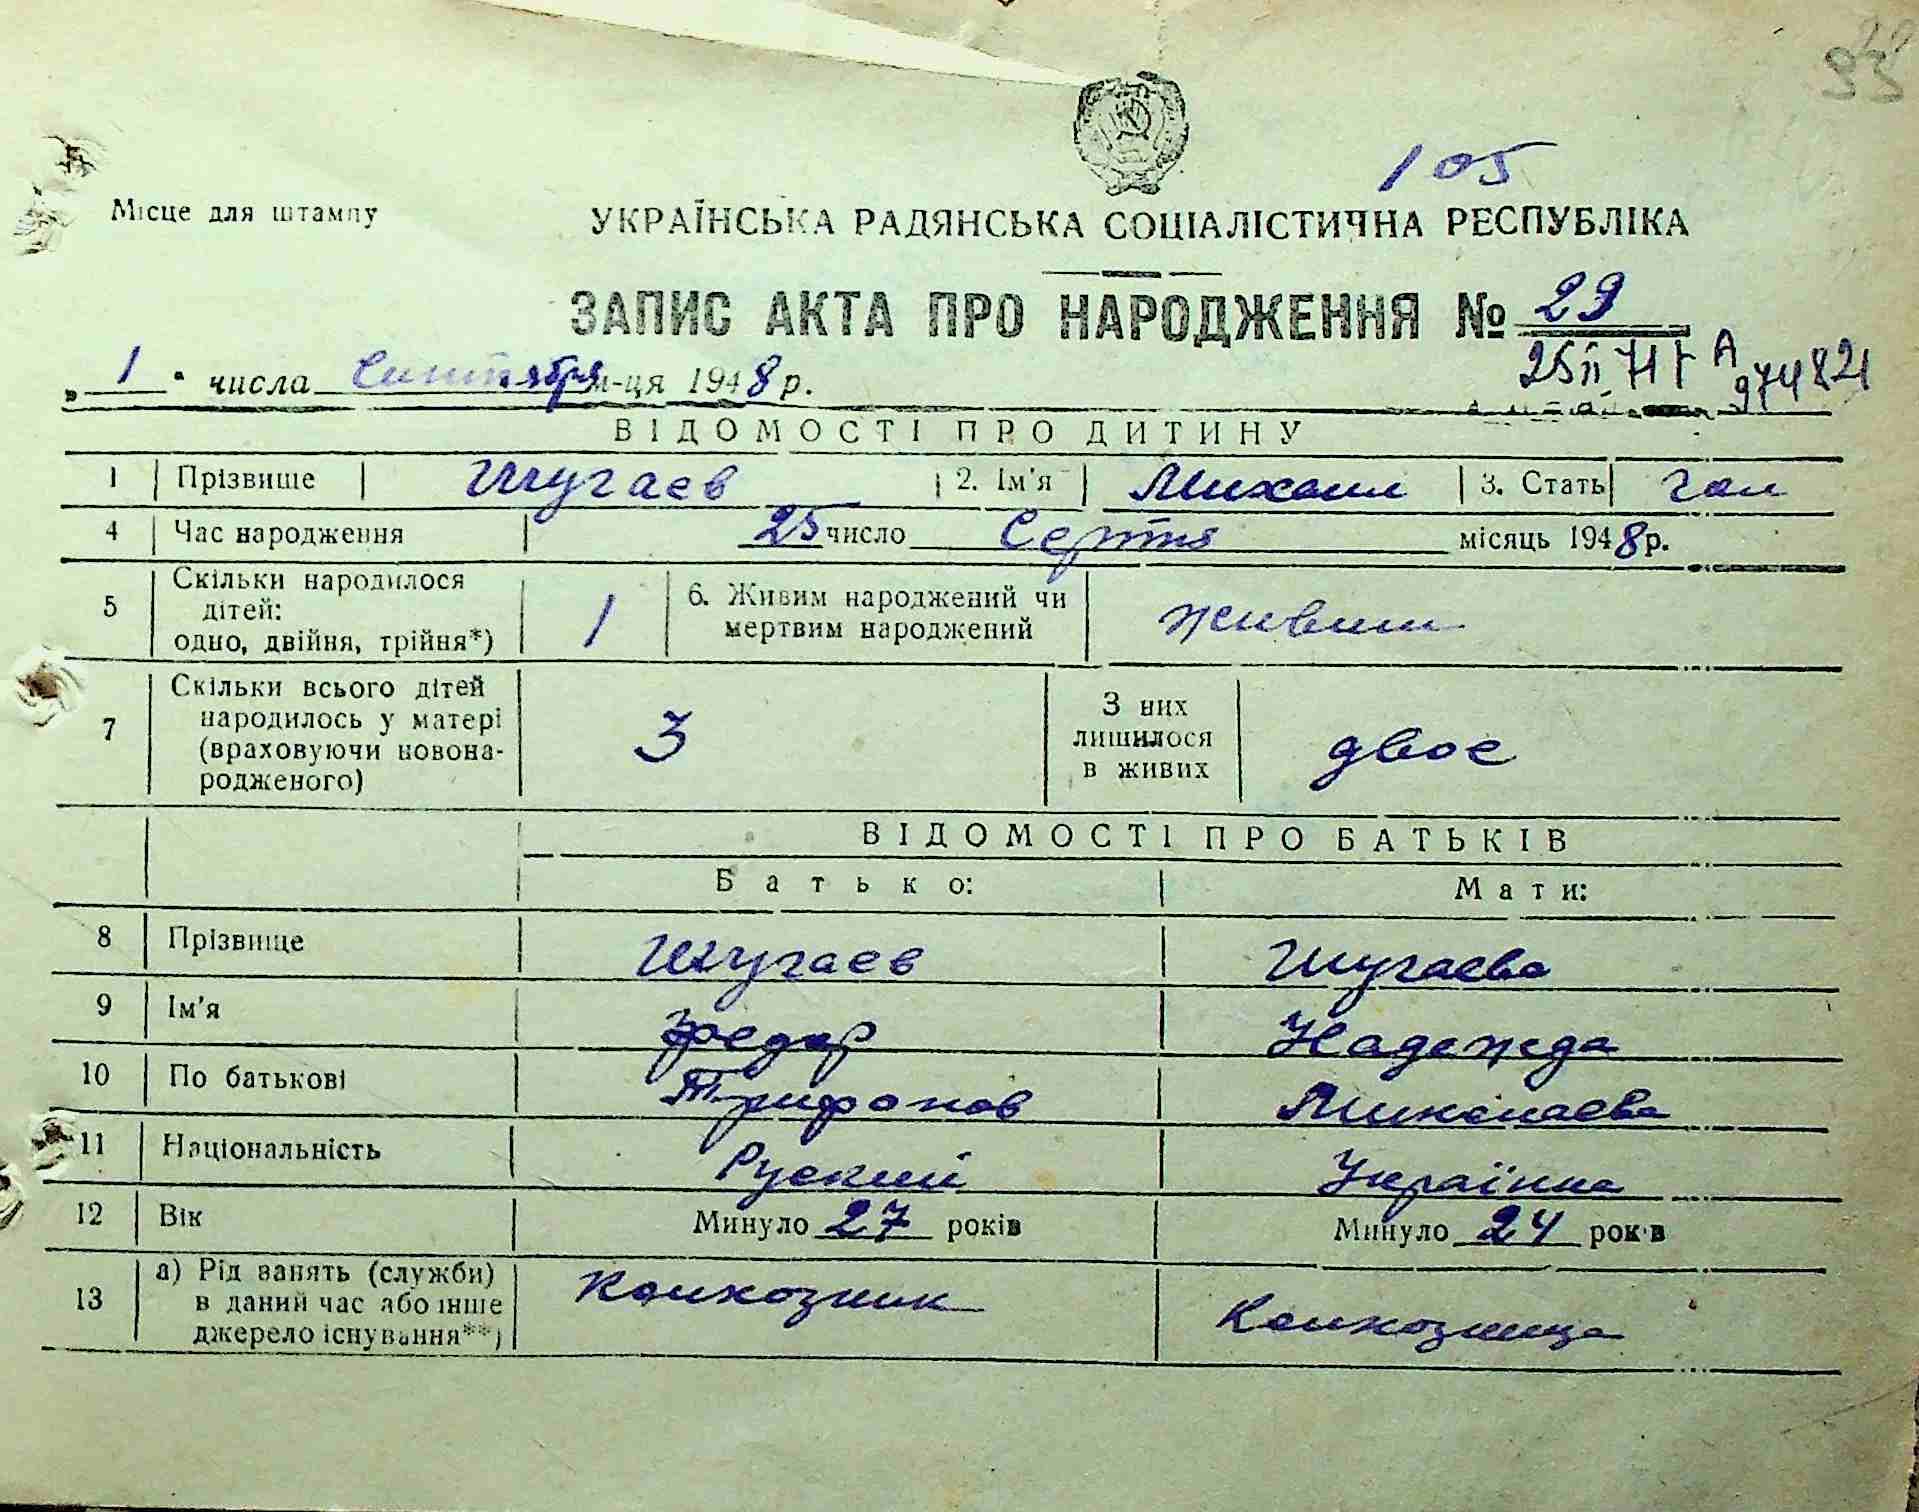 93
105
Місце для штампу
УКРАЇНСЬКА РАДЯНСЬКА СОЦІАЛІСТИЧНА РЕСПУБЛІКА
ЗАПИС АКТА ПРО НАРОДЖЕННЯ № 29
„ 1 " числа Сентября м-ця 1948 р.
25 II 71 г А 974821
ВІДОМОСТІ ПРО ДИТИНУ
1 Прізвище Шугаєв 2. Ім'я Михаил 3. Стать чол
4 Час народження 25 число Серпня місяць 1948 р.
5 Скільки народилося дітей: одно, двійня, трійня*) 1 6. Живим народжений чи мертвим народжений живим
7 Скільки всього дітей народилось у матері (враховуючи новона-родженого) 3 З них лишилося в живих двоє
ВІДОМОСТІ ПРО БАТЬКІВ
Батько: Мати:
8 Прізвище Шугаєв Шугаєва
9 Ім'я Федор Надежда
10 По батькові Трифонов Миколаєва
11 Національність Руский Українка
12 Вік Минуло 27 років Минуло 24 років
13 а) Рід занять (служби) в даний час або інше джерело існування**) Колхозник Колхозница